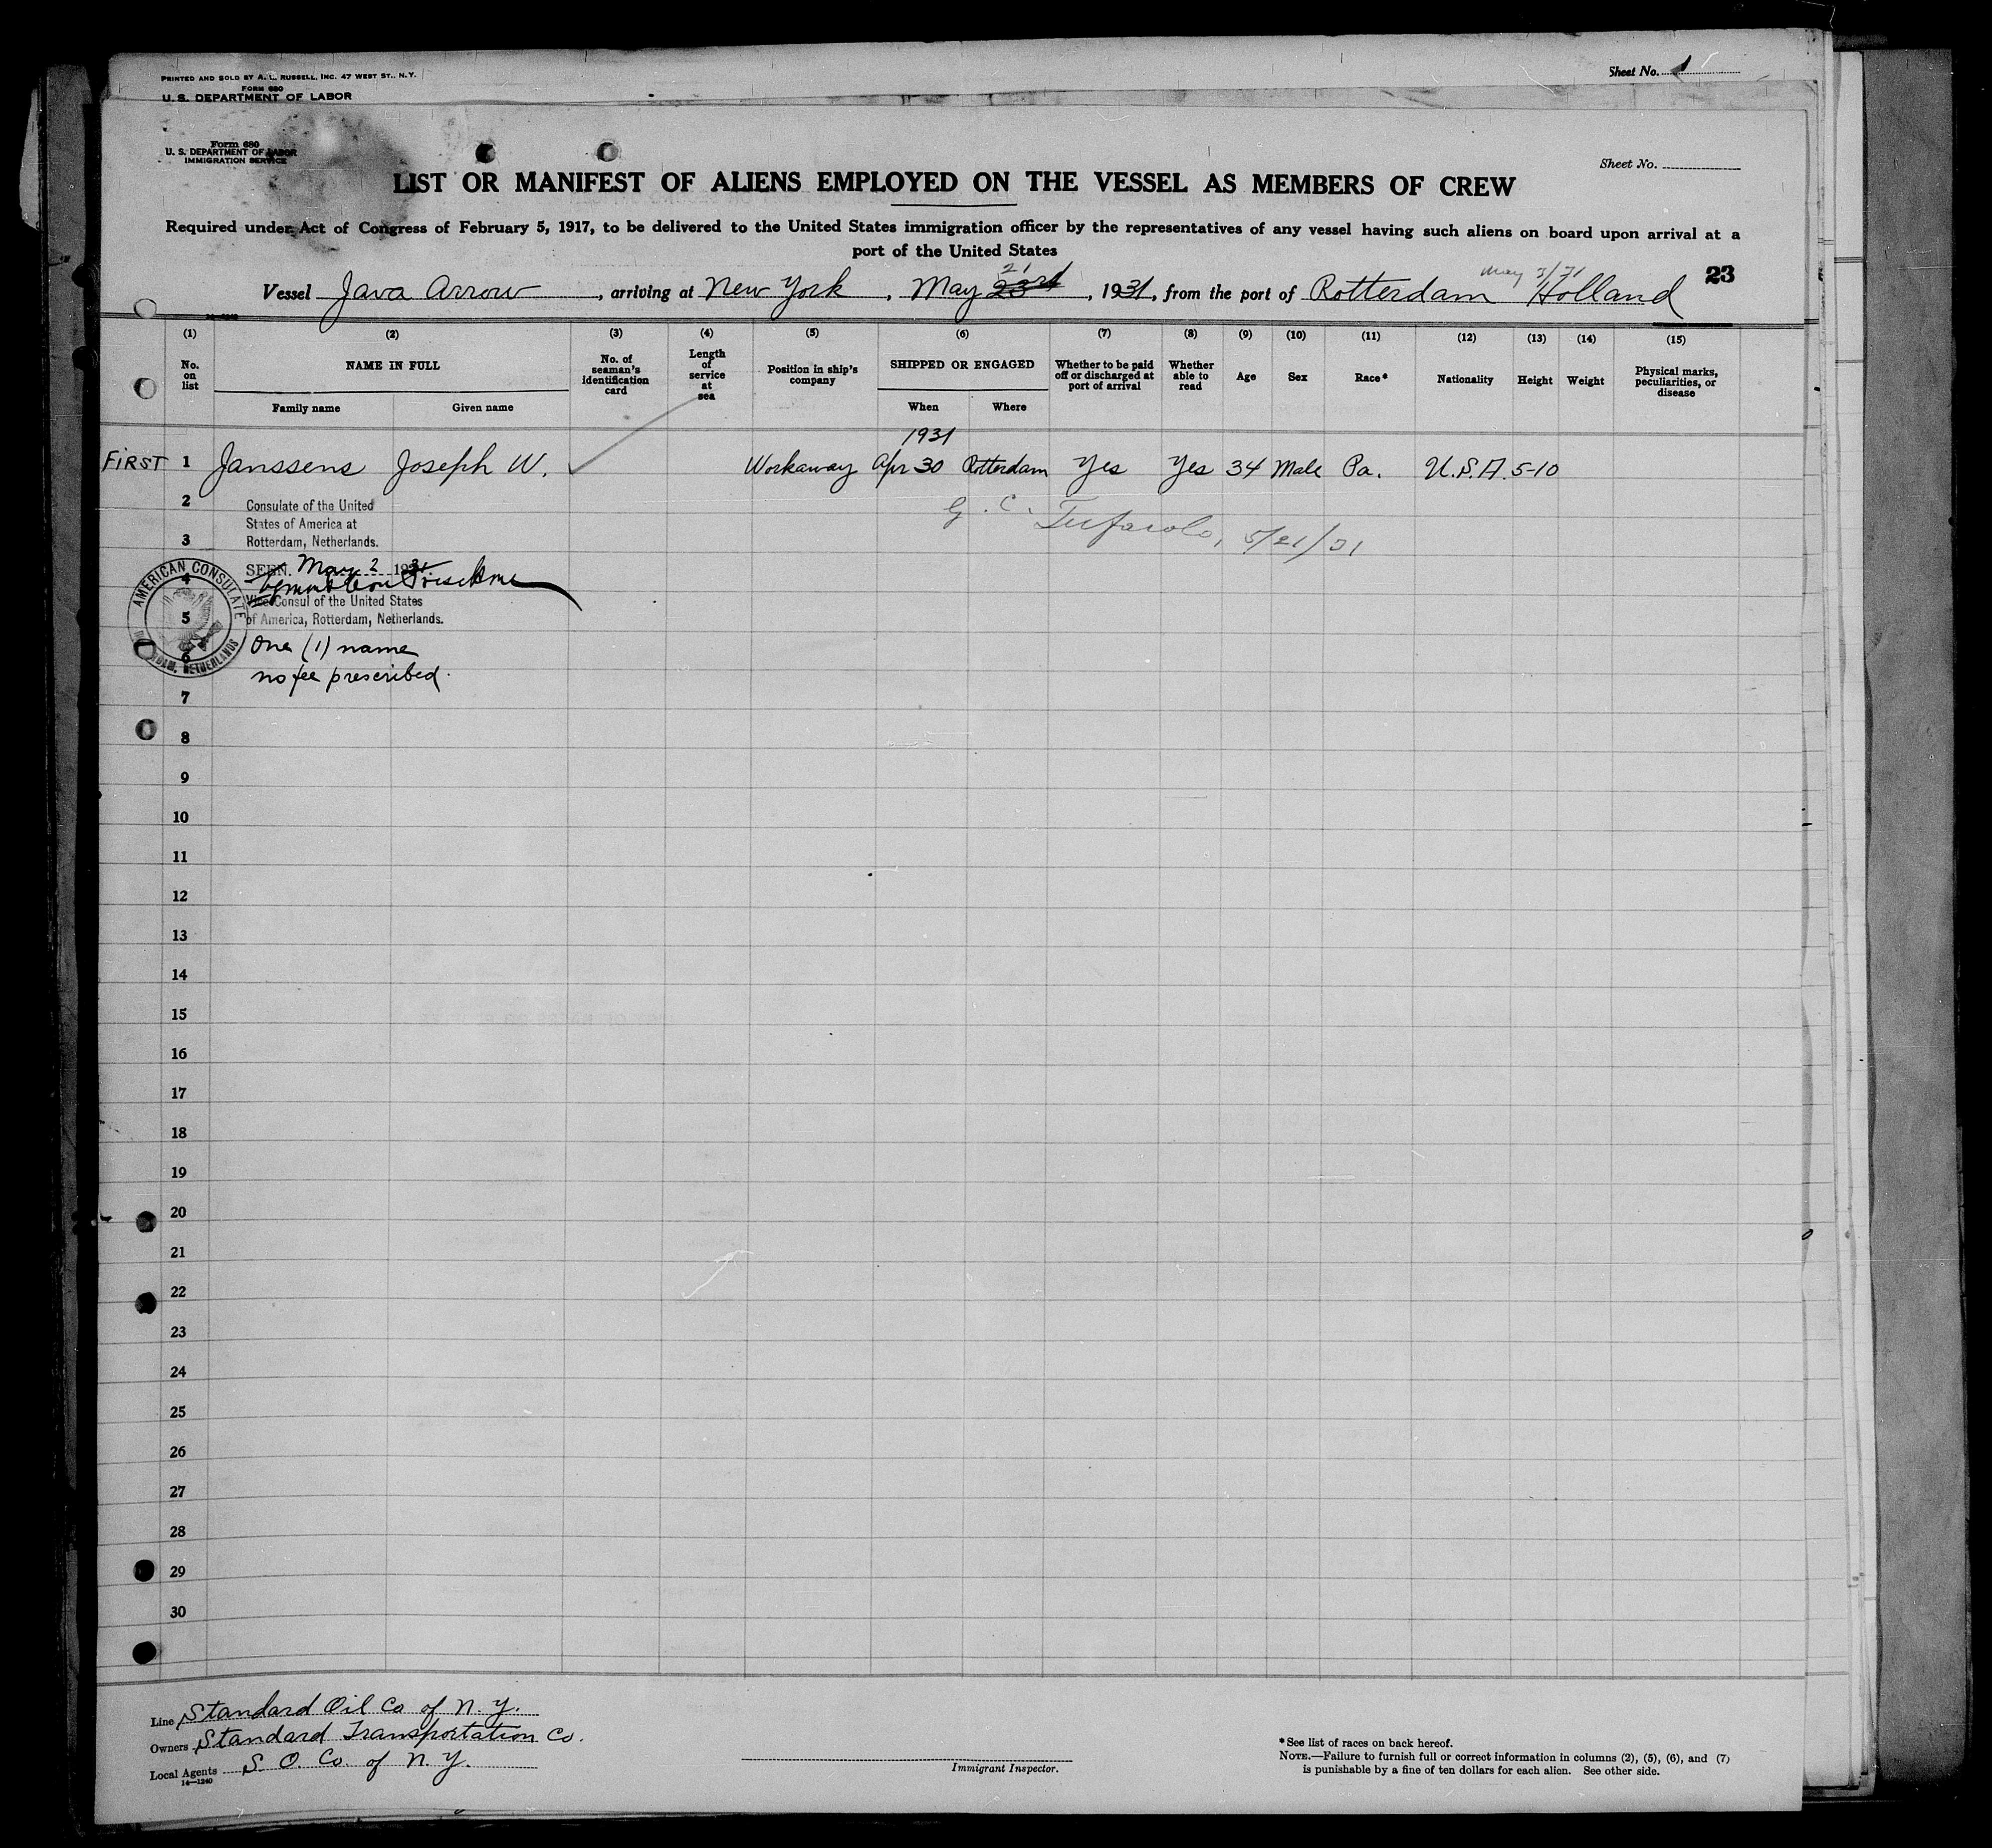 PRINTED AND SOLD BY A. L. RUSSELL, INC. 47 WEST ST., N.Y.
FORM 680
U. S. DEPARTMENT OF LABOR
Sheet No. 1
Form 680
U. S. DEPARTMENT OF LABOR
IMMIGRATION SERVICE
Sheet No.
LIST OR MANIFEST OF ALIENS EMPLOYED ON THE VESSEL AS MEMBERS OF CREW
Required under Act of Congress of February 5, 1917, to be delivered to the United States immigration officer by the representatives of any vessel having such aliens on board upon arrival at a
port of the United States
21 May 3/31 23
Vessel Java Arrow, arriving at New York, May 23rd, 1931, from the port of Rotterdam Holland
(1) (2) (3) (4) (5) (6) (7) (8) (9) (10) (11) (12) (13) (14) (15)
No. on list
NAME IN FULL
Family name Given name
No. of seaman's identification card
Length of service at sea
Position in ship's company
SHIPPED OR ENGAGED
When Where
Whether to be paid off or discharged at port of arrival
Whether able to read
Age
Sex
Race*
Nationality
Height
Weight
Physical marks, peculiarities, or disease
1931
FIRST 1 Janssens Joseph W. Workaway Apr 30 Rotterdam Yes Yes 34 Male Pa. U.S.A. 5-10
2 Consulate of the United
States of America at
3 Rotterdam, Netherlands.
G. C. 5/21/31
SEEN May 2 1931
4
Vice Consul of the United States
5 of America, Rotterdam, Netherlands.
AMERICAN CONSULATE
NETHERLANDS
6 One (1) name
no fee prescribed.
7
8
9
10
11
12
13
14
15
16
17
18
19
20
21
22
23
24
25
26
27
28
29
30
Line Standard Oil Co of N. Y.
Owners Standard Transportation Co.
Local Agents S. O. Co. of N. Y.
14—1240
Immigrant Inspector.
* See list of races on back hereof.
NOTE.—Failure to furnish full or correct information in columns (2), (5), (6), and (7)
is punishable by a fine of ten dollars for each alien. See other side.